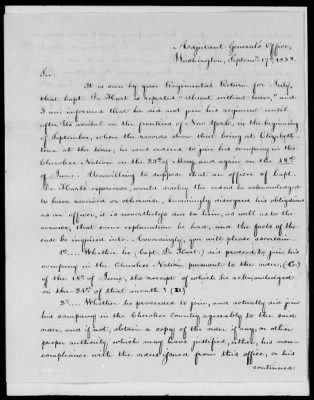 Adjutant General's Office,
Washington, Septemr. 17th 1838.
Sir.
It is seen by your Regimental Return for July,
that Capt. De Hart is reported "Absent without leave," and
I am informed that he did not join his regiment until
after its arrival on the frontiers of New York, in the beginning
of September, when the records show that being at Elizabeth-
town at the time, he was ordered to join his company in the
Cherokee Nation on the 25th of May and again on the 18th
of June. Unwilling to suppose that an officer of Capt.
De Hart's experience, would under the orders he acknowledged
to have received or otherwise, knowingly disregard his obligations
as an officer, it is nevertheless due to him, as well as to the
service, that some explanation be had, and the facts of the
case be inquired into. Accordingly, you will please ascertain
1st.... Whether he (Capt. De Hart,) did proceed to join his
company in the Cherokee Nation pursuant to the order (C.)
of the 18th of June, the receipt of which he acknowledged
on the 21st of that month? (D)
2d.... Whether he proceeded to join, and actually did join
his company in the Cherokee Country agreeably to the said
order, and if not, obtain a copy of the order if any, or other
proper authority, which may have justified, either, his non-
compliance with the orders issued from this office, or his
continued